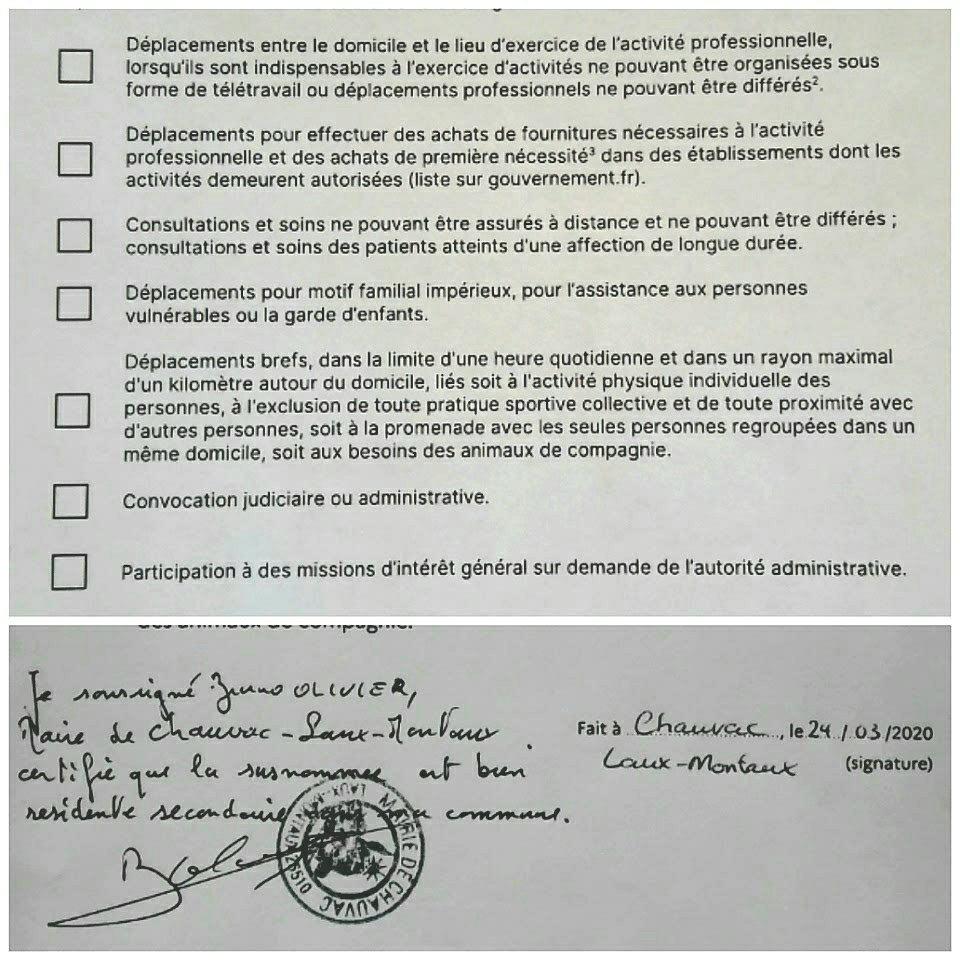 Déplacements entre le domicile et le lieu d'exercice de l'activité professionnelle,
lorsqu'ils sont indispensables à l'exercice d'activités ne pouvant être organisées sous
forme de télétravail ou déplacements professionnels ne pouvant être différés².
Déplacements pour effectuer des achats de fournitures nécessaires à l'activité
professionnelle et des achats de première nécessité³ dans des établissements dont les
activités demeurent autorisées (liste sur gouvernement.fr).
Consultations et soins ne pouvant être assurés à distance et ne pouvant être différés ;
consultations et soins des patients atteints d'une affection de longue durée.
Déplacements pour motif familial impérieux, pour l'assistance aux personnes
vulnérables ou la garde d'enfants.
Déplacements brefs, dans la limite d'une heure quotidienne et dans un rayon maximal
d'un kilomètre autour du domicile, liés soit à l'activité physique individuelle des
personnes, à l'exclusion de toute pratique sportive collective et de toute proximité avec
d'autres personnes, soit à la promenade avec les seules personnes regroupées dans un
même domicile, soit aux besoins des animaux de compagnie.
Convocation judiciaire ou administrative.
Participation à des missions d'intérêt général sur demande de l'autorité administrative.
des animaux de compagnie.
Je soussigné Bruno OLIVIER,
Maire de Chauvac-Laux-Montaux
certifie que la susnommée est bien
résidente secondaire commune.
Fait à Chauvac, le 24/03/2020
Laux-Montaux (signature)
MAIRIE DE CHAUVAC
LAUX-MONTAUX 26510